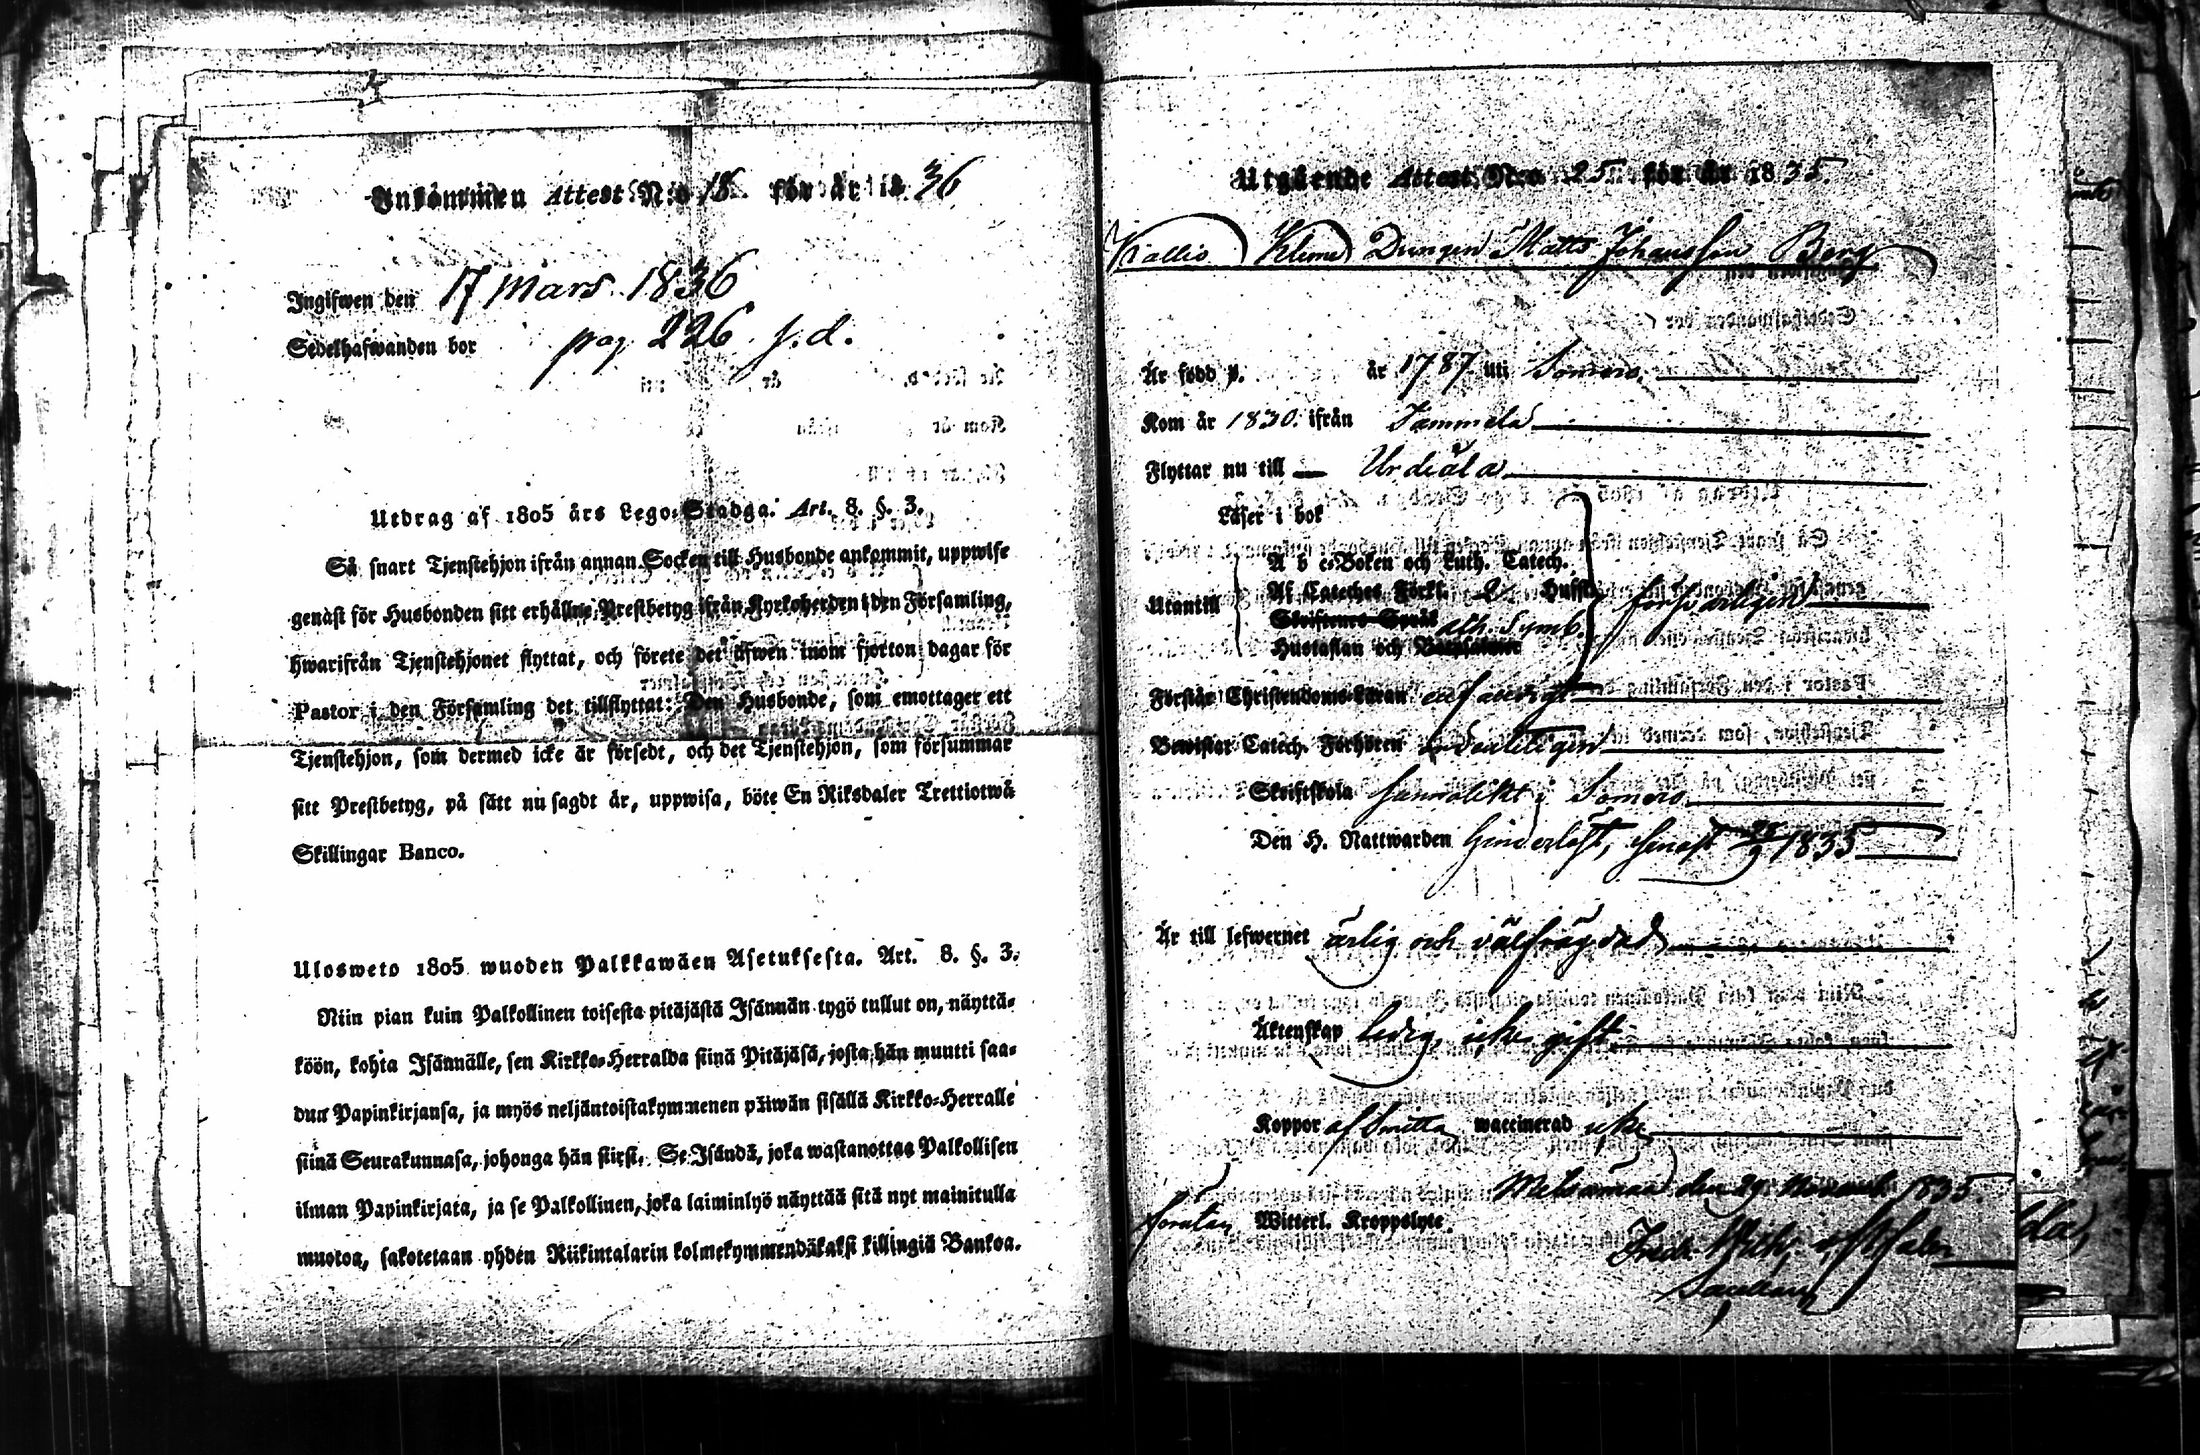 Inkommen Attest N:o 18 för år 1836
Ingifwen den 17 Mars 1836
Sedelhafwanden bor pag 226 s. d.
Utdrag af 1805 års Lego-Stadga. Art. 8. §. 3.
Så snart Tjenstehjon ifrån annan Socken till Husbonde ankommit, uppwise
genast för Husbonden sitt erhållne Prestbetyg ifrån Kyrkoherden i den Församling,
hwarifrån Tjenstehjonet flyttat, och förete det äfwen inom fjorton dagar för
Pastor i den Församling det tillflyttat: Den Husbonde, som emottager ett
Tjenstehjon, som dermed icke är försedt, och det Tjenstehjon, som försummar
sitt Prestbetyg, på sätt nu sagdt är, uppwisa, böte En Riksdaler Trettiotwå
Skillingar Banco.
Ulosweto 1805 wuoden Palkkawäen Asetuksesta. Art. 8. §. 3.
Niin pian kuin Palkollinen toisesta pitäjästä Isännän tygö tullut on, näyttä-
köön, kohta Isännälle, sen Kirkko-Herralda siinä Pitäjäsä, josta hän muutti saa-
dun Papinkirjansa, ja myös neljäntoistakymmenen päiwän sisällä Kirkko-Herralle
siinä Seurakunnasa, johonga hän siirsi. Se Isändä, joka wastanottaa Palkollisen
ilman Papinkirjata, ja se Palkollinen, joka laiminlyö näyttää sitä nyt mainitulla
muotoa, sakotetaan yhden Riikintalarin kolmekymmendäkaksi killingiä Bankoa.
Utgående Attest N:o 25 för år 1835.
Kallis Drengen Matts Johansson Berg
Är född p. år 1787 uti Somero
Kom år 1830. ifrån Tammela
Flyttar nu till Urdiala
Läser i bok
A b c-Boken och Luth. Catech.
Utantill Af Cateches Förkl. Hufst. försvarligen
Skriftenes Språk ath. Symb.
Hustaflan och Botpsalmer
Förstår Christendoms-Läran enfaldigt
Bewistar Catech. Förhören ordenteligen
Skriftskola i Somero
Den H. Nattwarden hinderlöst, senast 1835
Är till lefwernet ärlig och välfrägdad
Äktenskap ledig, icke gift
Koppor af Smitta waccinerad icke
den 29 Novemb. 1835.
Witterl. Kroppslyte
Fredr. Wilh.
Sacellan